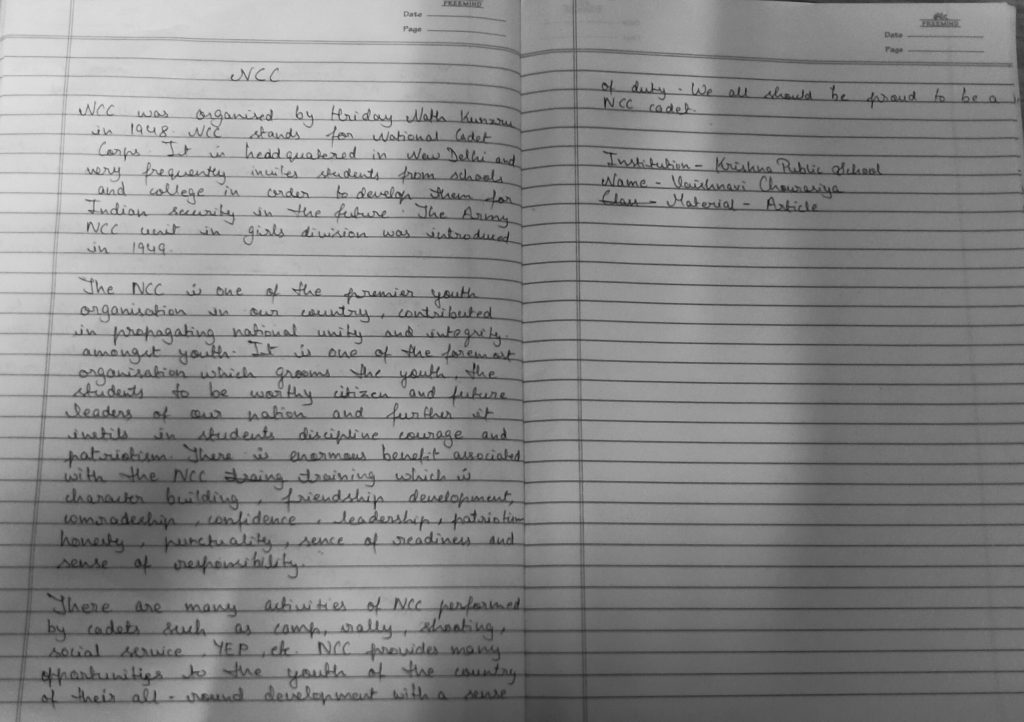 FREEMIND
Date
Page
NCC
NCC was organised by Hriday Nath Kunzru
in 1948. NCC stands for National Cadet
Corps. It is headquatered in New Delhi and
very frequently invites students from schools
and college in order to develop them for
Indian security in the future. The Army
NCC unit in girls division was introduced
in 1949.
The NCC is one of the premier youth
organisation in our country, contributed
in propagating national unity and integrity.
amongst youth. It is one of the foremost
organisation which grooms the youth, the
students to be worthy citizen and future
leaders of our nation and further it
instils in students discipline courage and
patriotism. There is enormous benefit associated
with the NCC traing training which is
character building, friendship development,
comradeship, confidence, leadership, patriotism
honesty, punctuality, sence of readiness and
sense of responsibility.
There are many activities of NCC performed
by cadets such as camp, rally, shooting,
social service, YEP, etc. NCC provides many
opportunities to the youth of the country
of their all-round development with a sense
FREEMIND
Date
Page
of duty. We all should be proud to be a
NCC cadet.
Institution - Krishna Public School
Name - Vaishnavi Chourasiya
Class - Material - Article